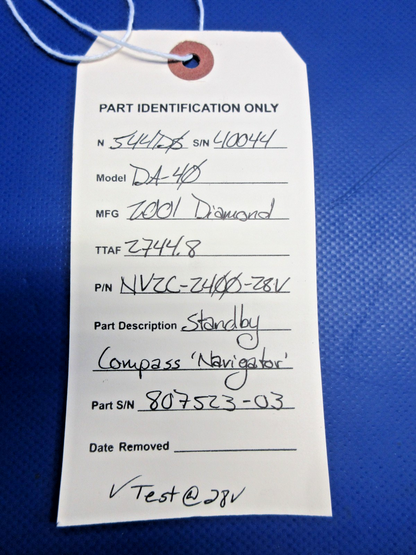 PART IDENTIFICATION ONLY
N 544DS S/N 40044
Model DA-40
MFG 2001 Diamond
TTAF 2744.8
P/N NV2C-2400-28V
Part Description Standby
Compass 'Navigator'
Part S/N 807523-03
Date Removed
✓ Test @ 28V